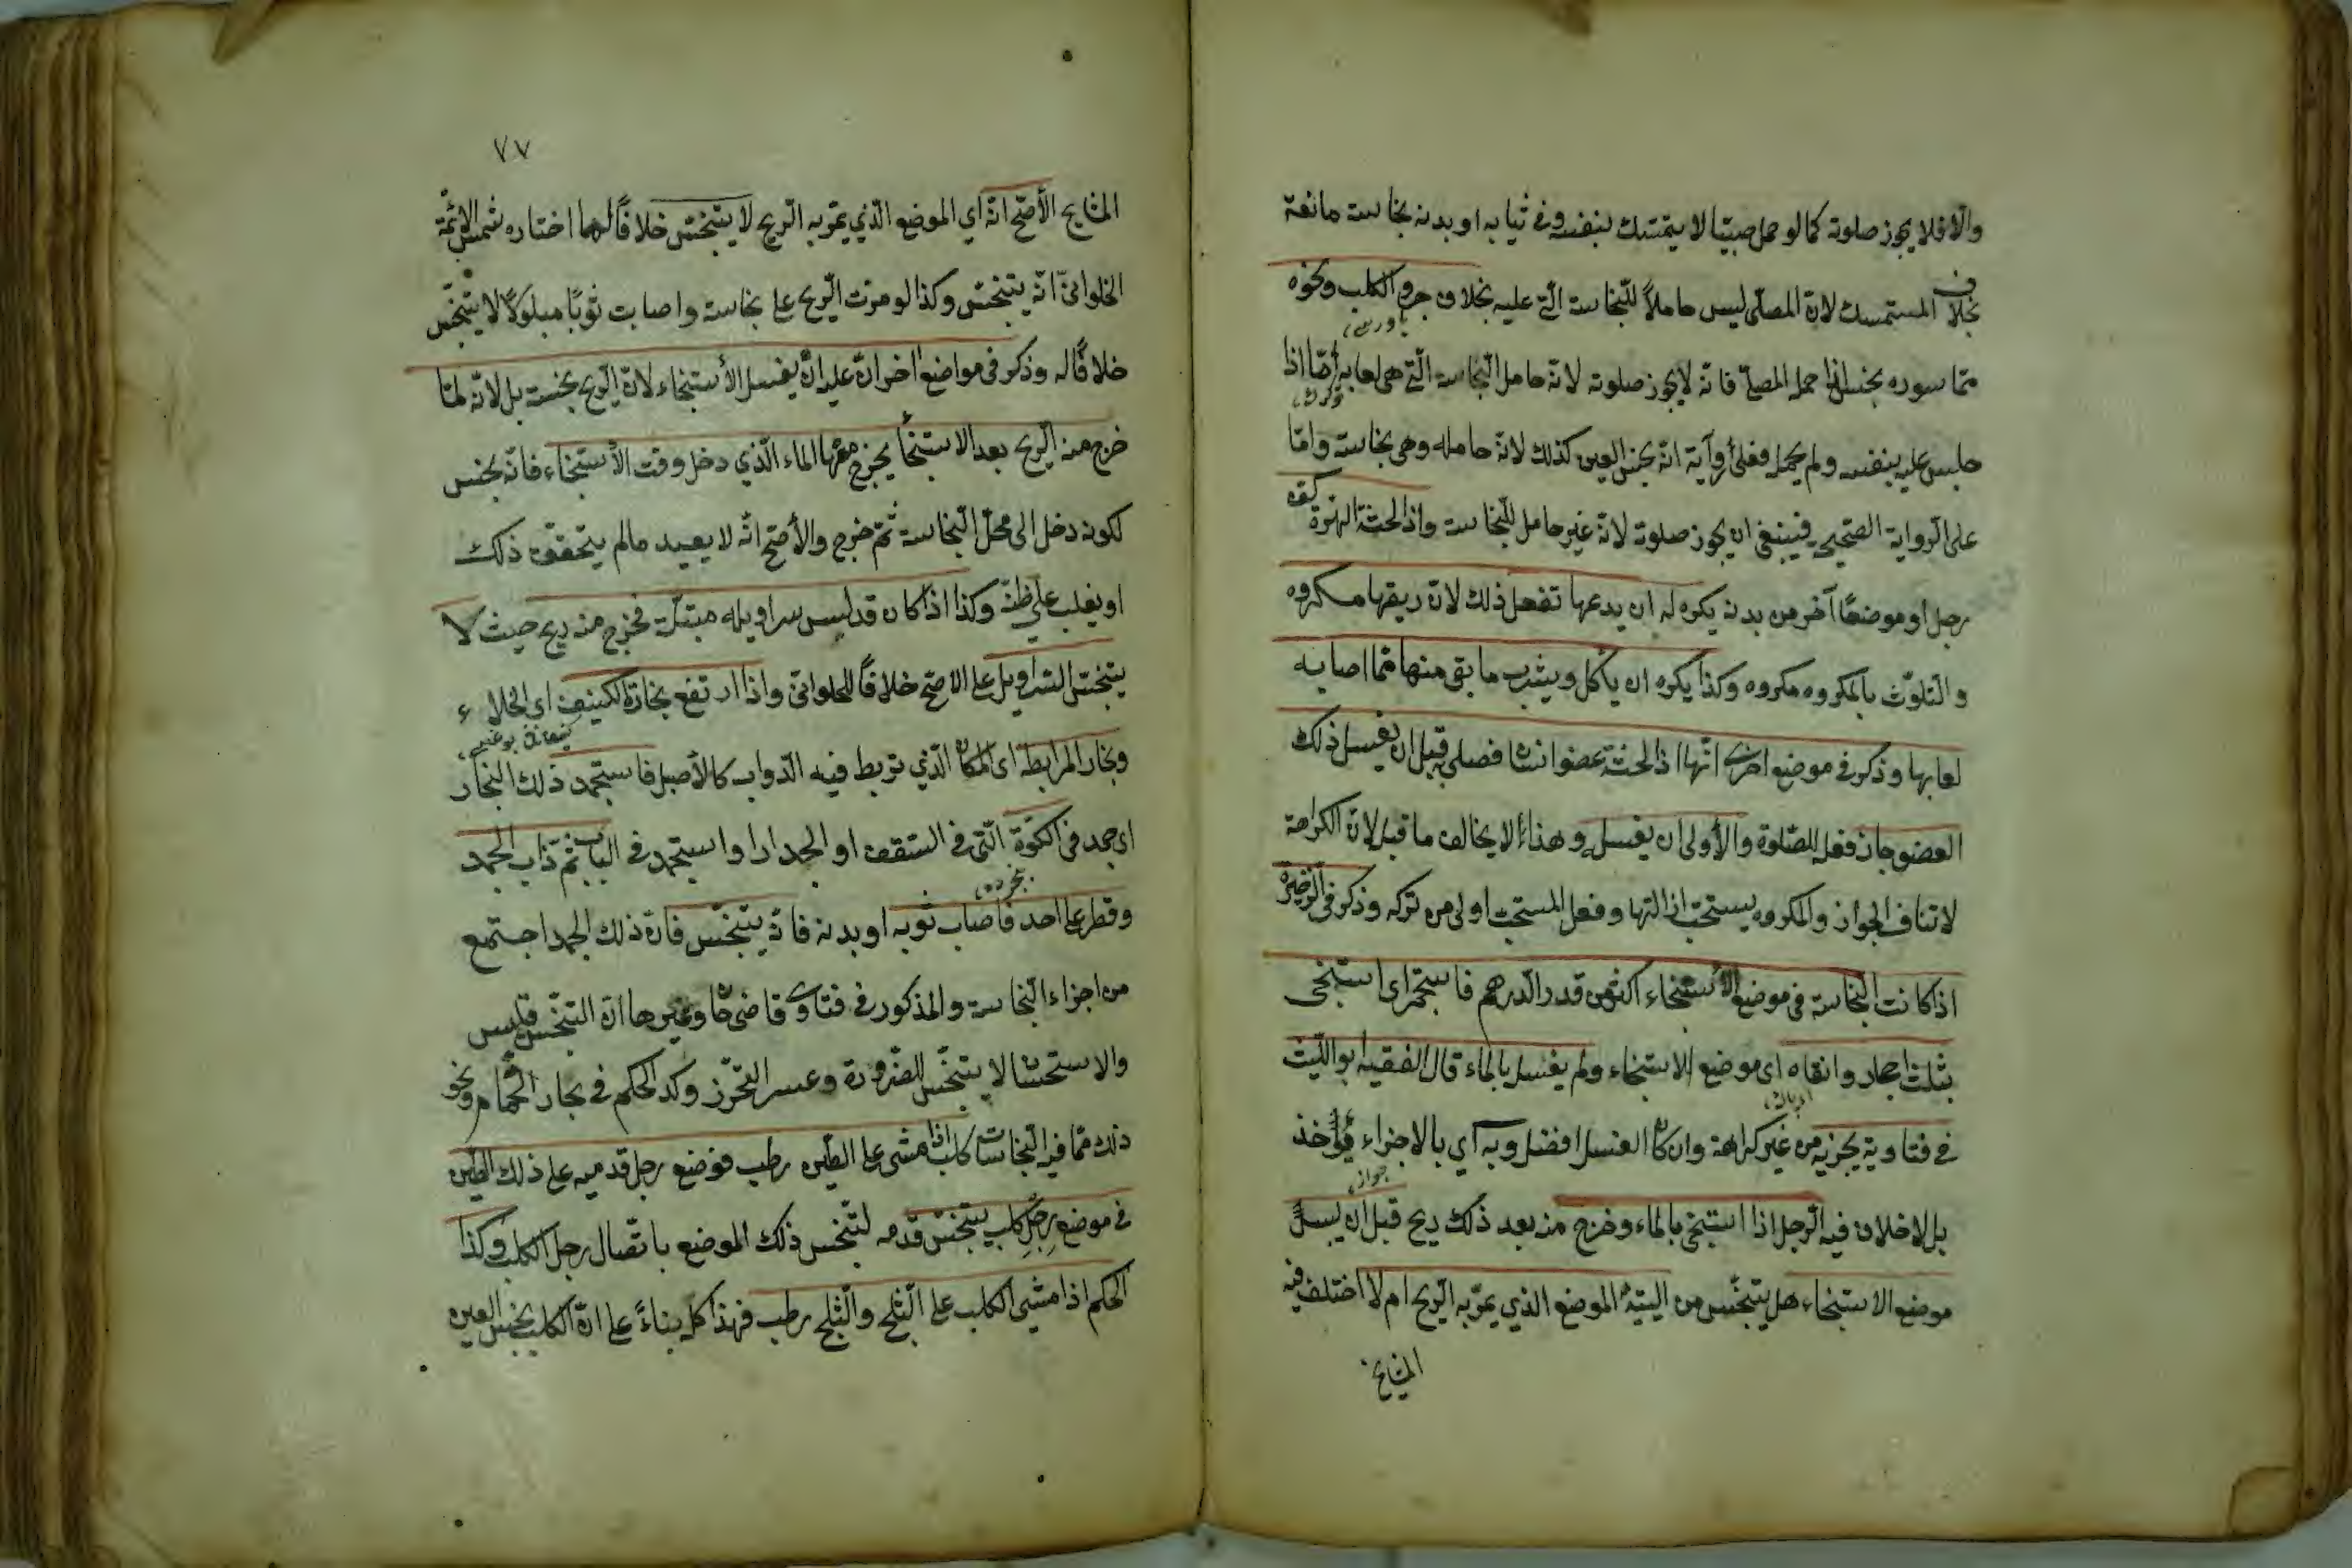 والا فلا يجوز صلوته كما لو حمل صبيّا لا يتمسك بنفسه وفي ثيابه او بدنه نجاسة مانعة
بخلاف المستمسك لانّ المصلّى ليس حاملاً للنّجاسة الّتي عليه بخلاف جرو الكلب ونحوه
ممّا سوره نجس اذا حمله المصلّي فانّه لا يجوز صلوته لانّه حامل النّجاسة الّتي هي لعابه أمّا اذا
جلس عليه بنفسه ولم يحمله فعلى رواية انّه نجس العين كذلك لانّه حامله وهي نجاسة وامّا
على الرّواية الصّحيحة فينبغي ان يجوز صلوته لانّه غير حامل للنّجاسة واذا لحست الهرّة كفّه
رجل او موضعًا آخر من بدنه يكره له ان يدعها تفعل ذلك لانّ ريقها مكروه
والتّلوّث بالمكروه مكروه وكذا يكره ان يأكل ويشرب ما بقى منها ممّا اصابه
لعابها وذكر في موضع اخرى انّها اذا لحست عضو انسان فصلى قبل ان يغسل ذلك
العضو جاز فعله للصّلوة والأولى ان يغسله وهذا لا يخالف ما قبله لانّ الكراهة
لا تنافى الجواز والمكروه يستحبّ ازالتها وفعل المستحبّ اولى من تركه وذكر في الذّخيرة
اذا كانت النّجاسة في موضع الأستنجاء اكثر من قدر الدّرهم فاستجمر اى استنجى
بثلثة احجار وانقاه اى موضع الاستنجاء ولم يغسله بالماء قال الفقيه ابو اللّيث
في فتاويه يجزيه من غير كراهة وان كان الغسل افضل وبه آي بالاجزاء يؤاخذ
بل لا خلاف فيه الرّجل اذا استنجى بالماء وخرج منه بعد ذلك ريح قبل ان يبس
موضع الاستنجاء هل يتنجّس من اليته الموضع الذي يمرّ به الرّيح ام لا اختلف فيه
المشايخ
٧٧
المشايخ الأصحّ انّه اي الموضع الّذي يمرّ به الرّيح لا يتنجّس خلافًا لما اختاره شمس الائمّة
الحلوانيّ انّه يتنجّس وكذا لو مرّت الرّيح على نجاسة واصابت ثوبًا مبلولاً لا يتنجّس
خلافًا له وذكر في مواضع اخر انّ عليه ان يغسل الأستنجاء لانّ الرّيح نجسة بل لانّه لمّا
خرج منه الرّيح بعد الاستنجأ يخرج معها الماء الّذي دخل وقت الأستنجاء فانّه نجس
لكونه دخل الى محلّ النّجاسة ثمّ خرج والأصحّ انّه لا يعيد مالم يتحقّق ذلك
او يغلب على ظنّه وكذا اذا كان قد لبس سراويله مبتلّة فخرج منه ريح حيث لا
يتنجّس السّراويل على الاصحّ خلافًا للحلوانيّ واذا ارتفع بخار الكنيف اى الخلاء
وبخار المرابط اى المكان الّذي تربط فيه الدّواب كالأصطبل فاستجمد ذلك البخار
اى جمد في الكوّة الّتي في السّقف او الجدار او استجمد في الباب ثمّ ذاب الجمد
وقطر على احد فاصاب ثوبه او بدنه فانّه يتنجّس فانّ ذلك الجمد اجتمع
من اجزاء النّجاسة والمذكور في فتاوى قاضى خان وغيرها انّ التنجّس قياس
والاستحسان لا يتنجّس للضّرورة وعسر التّحرّز وكذا الحكم في بخار الحمّام ونحو
ذلك ممّا فيه النّجاسات كلب اذا مشى على الطّين رطب فوضع رجل قدميه على ذلك الطّين
في موضع رجل كلب يتنجّس قدمه لتنجّس ذلك الموضع باتّصال رجل الكلب وكذا
الحكم اذا مشى الكلب على الثّلج والثّلج رطب فهذا كلّه بناءً على انّ الكلب نجس العين